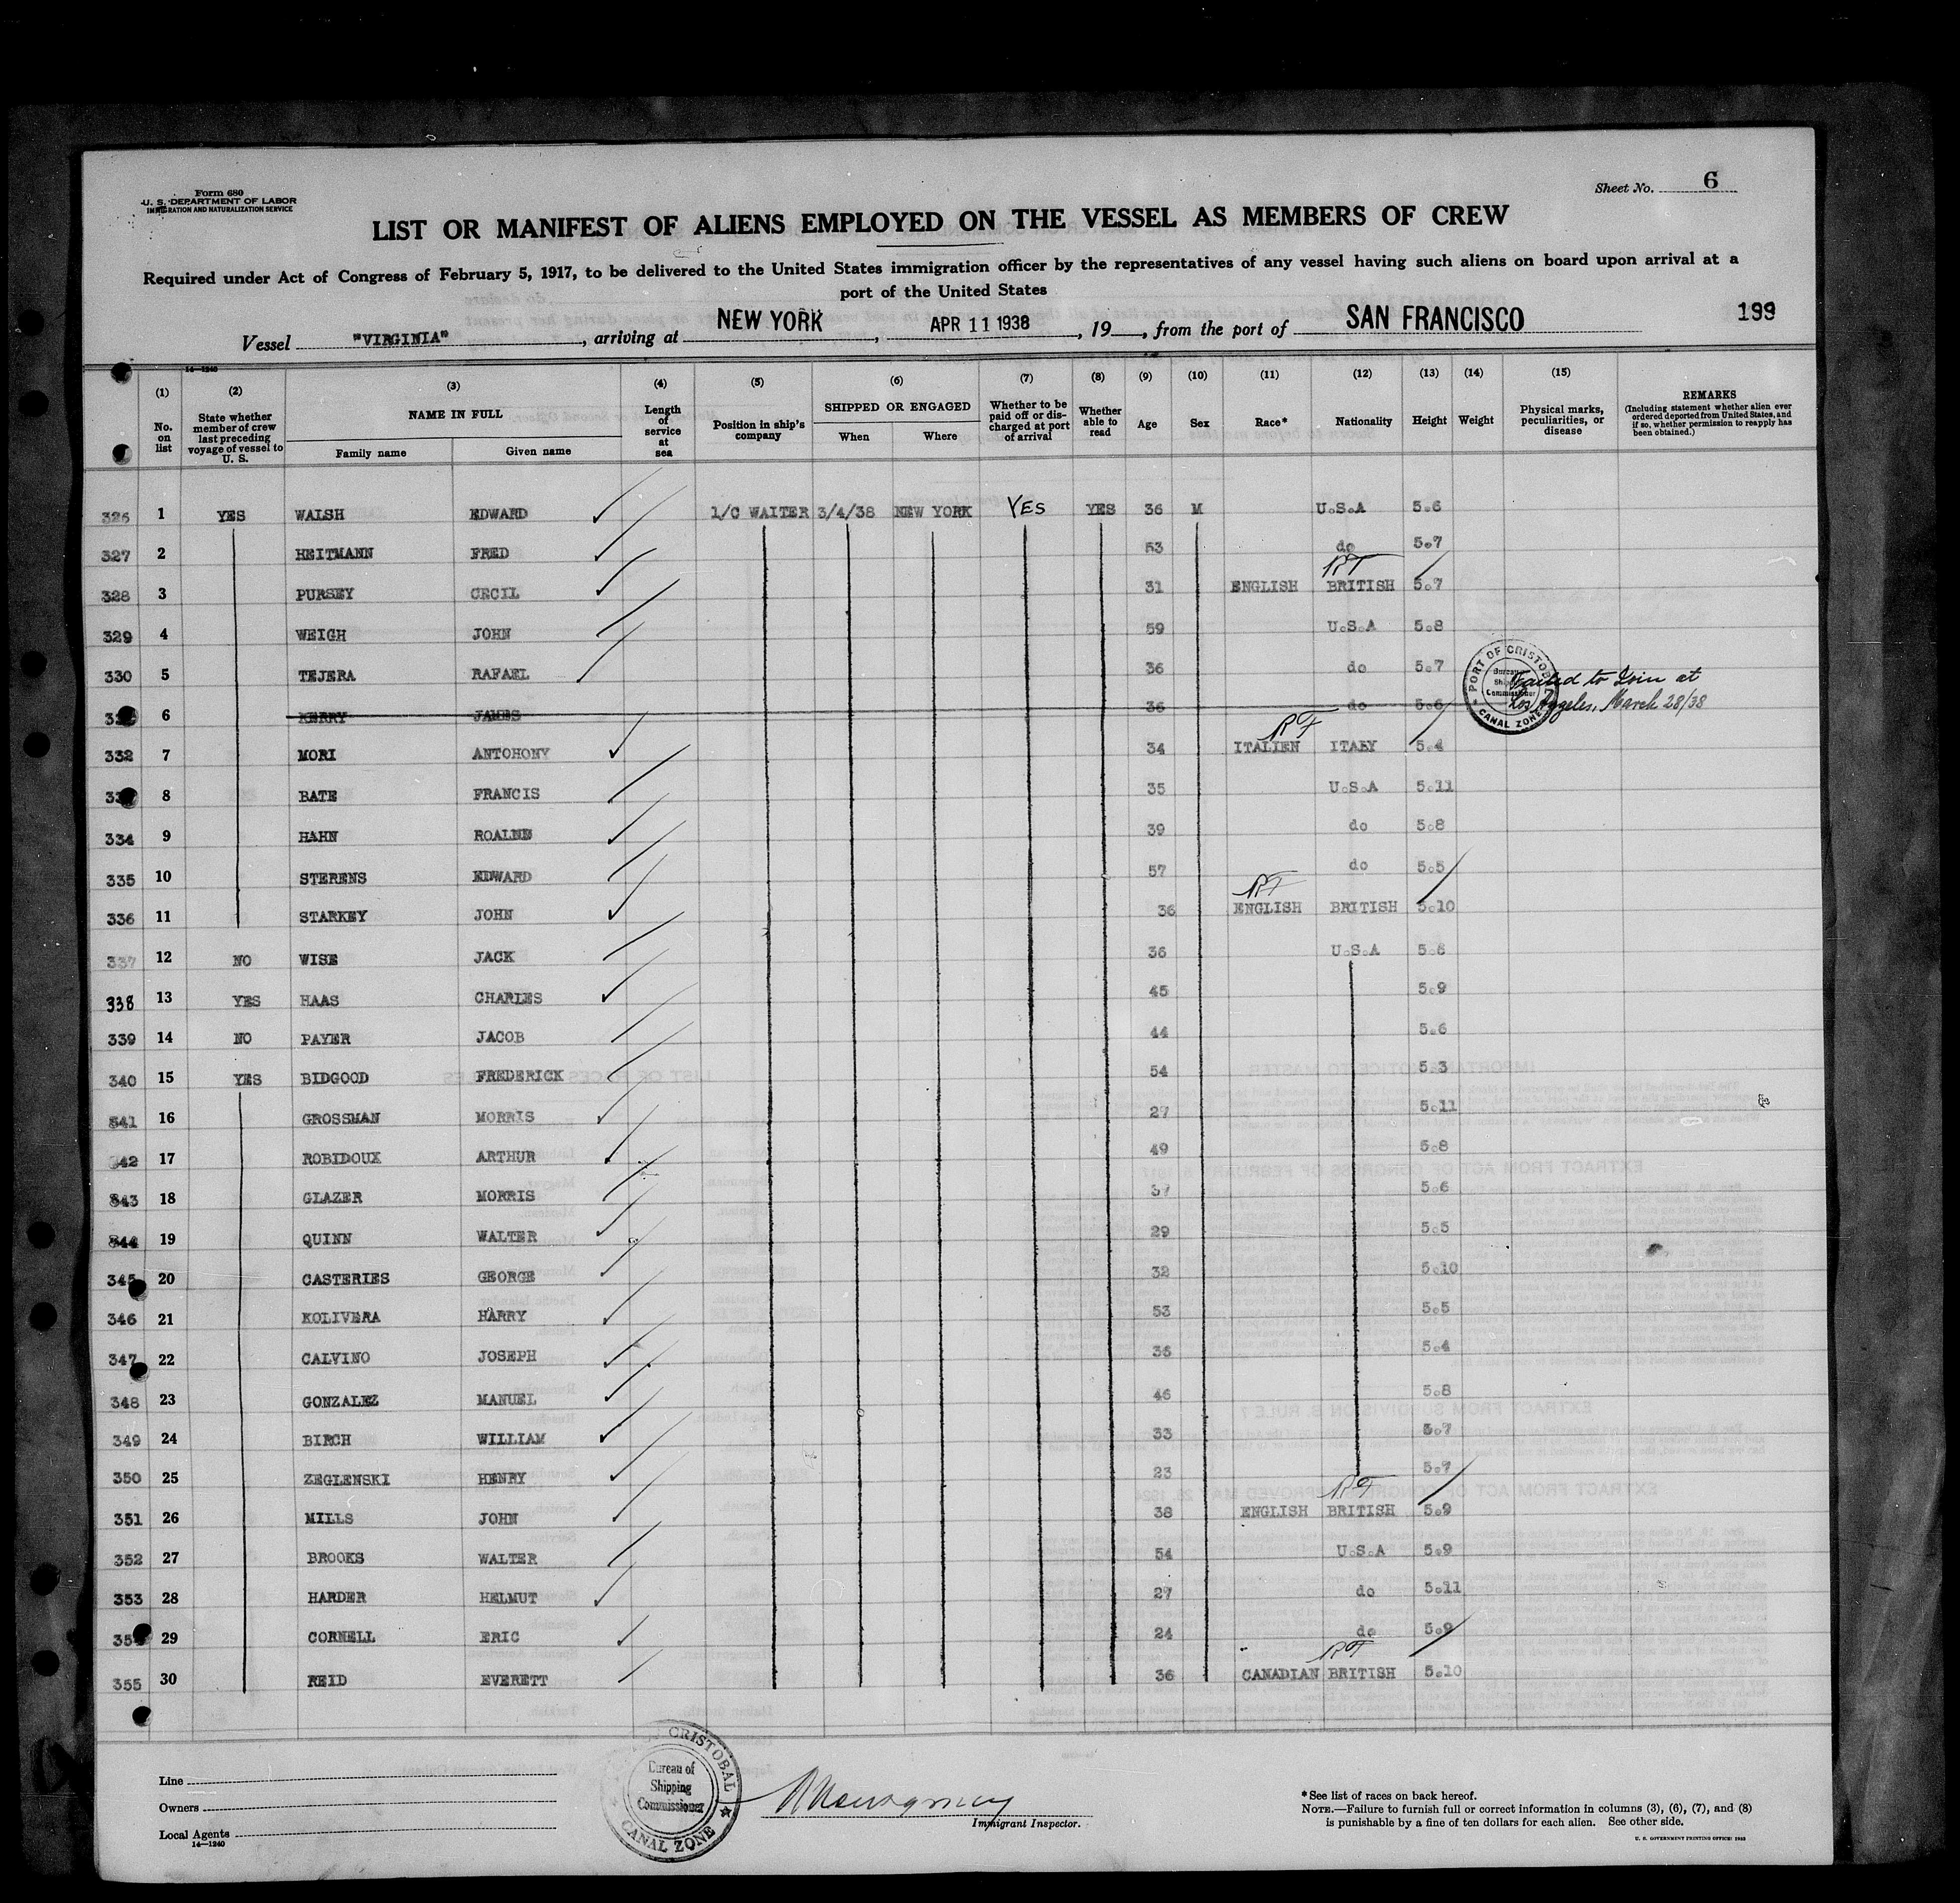 Form 680
U. S. DEPARTMENT OF LABOR
IMMIGRATION AND NATURALIZATION SERVICE
Sheet No. 6
LIST OR MANIFEST OF ALIENS EMPLOYED ON THE VESSEL AS MEMBERS OF CREW
Required under Act of Congress of February 5, 1917, to be delivered to the United States immigration officer by the representatives of any vessel having such aliens on board upon arrival at a
port of the United States
Vessel "VIRGINIA", arriving at NEW YORK, APR 11 1938, 19, from the port of SAN FRANCISCO 199
14—1240
(1) (2) (3) (4) (5) (6) (7) (8) (9) (10) (11) (12) (13) (14) (15)
No. on list
State whether member of crew last preceding voyage of vessel to U. S.
NAME IN FULL
Family name
Given name
Length of service at sea
Position in ship's company
SHIPPED OR ENGAGED
When
Where
Whether to be paid off or discharged at port of arrival
Whether able to read
Age
Sex
Race*
Nationality
Height
Weight
Physical marks, peculiarities, or disease
REMARKS
(Including statement whether alien ever ordered deported from United States, and if so, whether permission to reapply has been obtained.)
326 1 YES WALSH EDWARD 1/C WAITER 3/4/38 NEW YORK YES YES 36 M U.S.A 5.6
327 2 HEITMANN FRED 53 do 5.7
328 3 PURSEY CECIL 31 ENGLISH RT BRITISH 5.7
329 4 WEIGH JOHN 59 U.S.A 5.8
330 5 TEJERA RAFAEL 36 do 5.7
6 KERRY JAMES 36 do 5.6 Failed to Join at Los Angeles, March 28/38
PORT OF CRISTOBAL Bureau of Shipping Commissioner CANAL ZONE
332 7 MORI ANTOHONY 34 RT ITALIEN ITALY 5.4
8 BATE FRANCIS 35 U.S.A 5.11
334 9 HAHN ROALNE 39 do 5.8
335 10 STERENS EDWARD 57 do 5.5
336 11 STARKEY JOHN 36 RT ENGLISH BRITISH 5.10
337 12 NO WISE JACK 36 U.S.A 5.6
338 13 YES HAAS CHARLES 45 5.9
339 14 NO PAYER JACOB 44 5.6
340 15 YES BIDGOOD FREDERICK 54 5.3
341 16 GROSSMAN MORRIS 27 5.11
342 17 ROBIDOUX ARTHUR 49 5.8
343 18 GLAZER MORRIS 37 5.6
344 19 QUINN WALTER 29 5.5
345 20 CASTERIES GEORGE 32 5.10
346 21 KOLIVERA HARRY 53 5.5
347 22 CALVINO JOSEPH 36 5.4
348 23 GONZALEZ MANUEL 46 5.8
349 24 BIRCH WILLIAM 33 5.7
350 25 ZEGLENSKI HENRY 23 5.7
351 26 MILLS JOHN 38 ENGLISH RT BRITISH 5.9
352 27 BROOKS WALTER 54 U.S.A 5.9
353 28 HARDER HELMUT 27 do 5.11
29 CORNELL ERIC 24 do 5.9
355 30 REID EVERETT 36 CANADIAN RT BRITISH 5.10
Line
Owners
Local Agents
14—1240
CRISTOBAL
Bureau of
Shipping
Commissioner
CANAL ZONE
Immigrant Inspector.
*See list of races on back hereof.
NOTE.—Failure to furnish full or correct information in columns (3), (6), (7), and (8)
is punishable by a fine of ten dollars for each alien. See other side.